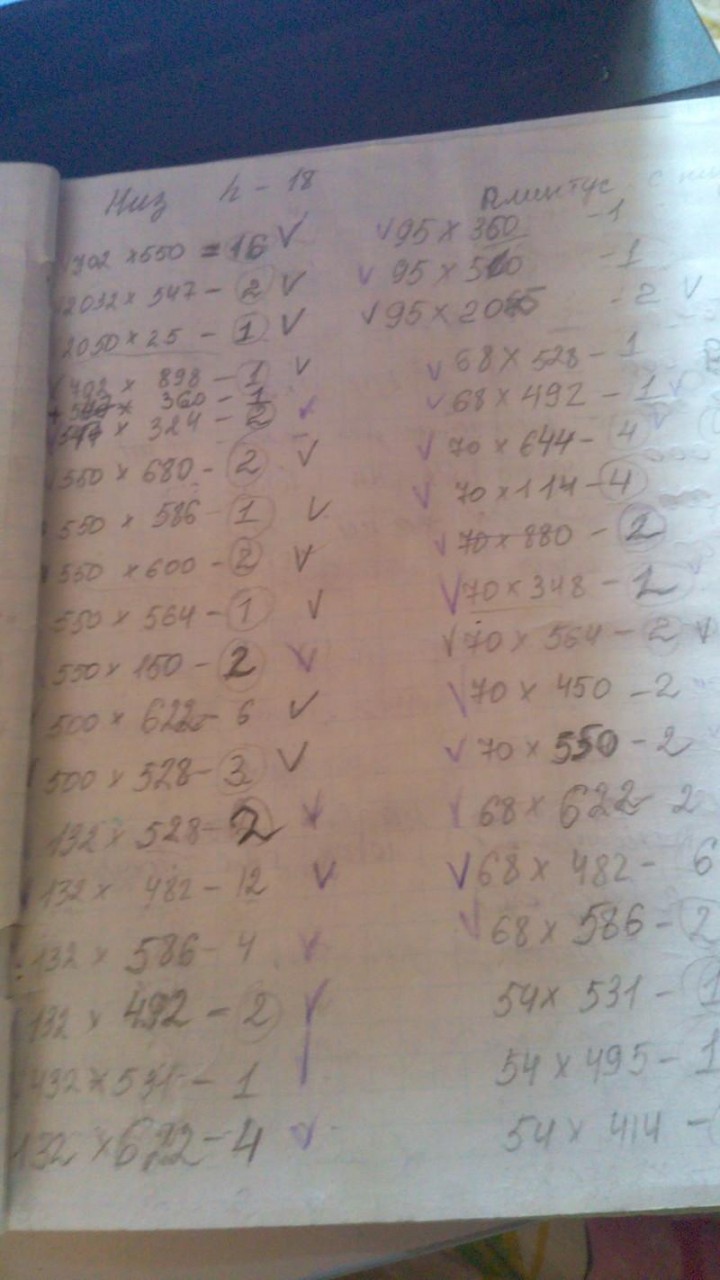 Низ h - 18
702 x 550 = 16
2032 x 547 - 2
2050 x 25 - 1
702 x 898 - 1
x 360 - 1
x 324 - 2
550 x 680 - 2
550 x 586 - 1
550 x 600 - 2
550 x 564 - 1
550 x 150 - 2
500 x 622 - 6
500 x 528 - 3
132 x 528 - 2
132 x 482 - 12
132 x 586 - 4
132 x 492 - 2
132 x 531 - 1
132 x 622 - 4
Плинтус с
95 x 360 - 1
95 x 510 - 1
95 x 20 - 2
68 x 528 - 1
68 x 492 - 1
70 x 644 - 4
70 x 114 - 4
70 x 880 - 2
70 x 348 - 2
70 x 564 - 2
70 x 450 - 2
70 x 550 - 2
68 x 622 - 2
68 x 482 - 6
68 x 586 - 2
54 x 531 - 1
54 x 495 - 1
54 x 414 -